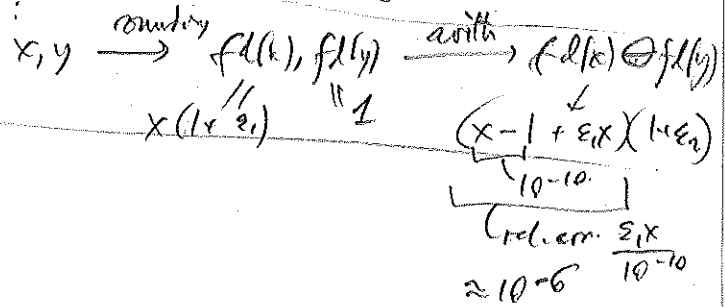 x, y rounding → fl(x), fl(y) arith → fl(x) ⊖ fl(y)
x(1+ε₁) 1 (x - 1 + ε₁x)(1+ε₂)
10^-10
rel. err. ε₁x / 10^-10
≈ 10^-6